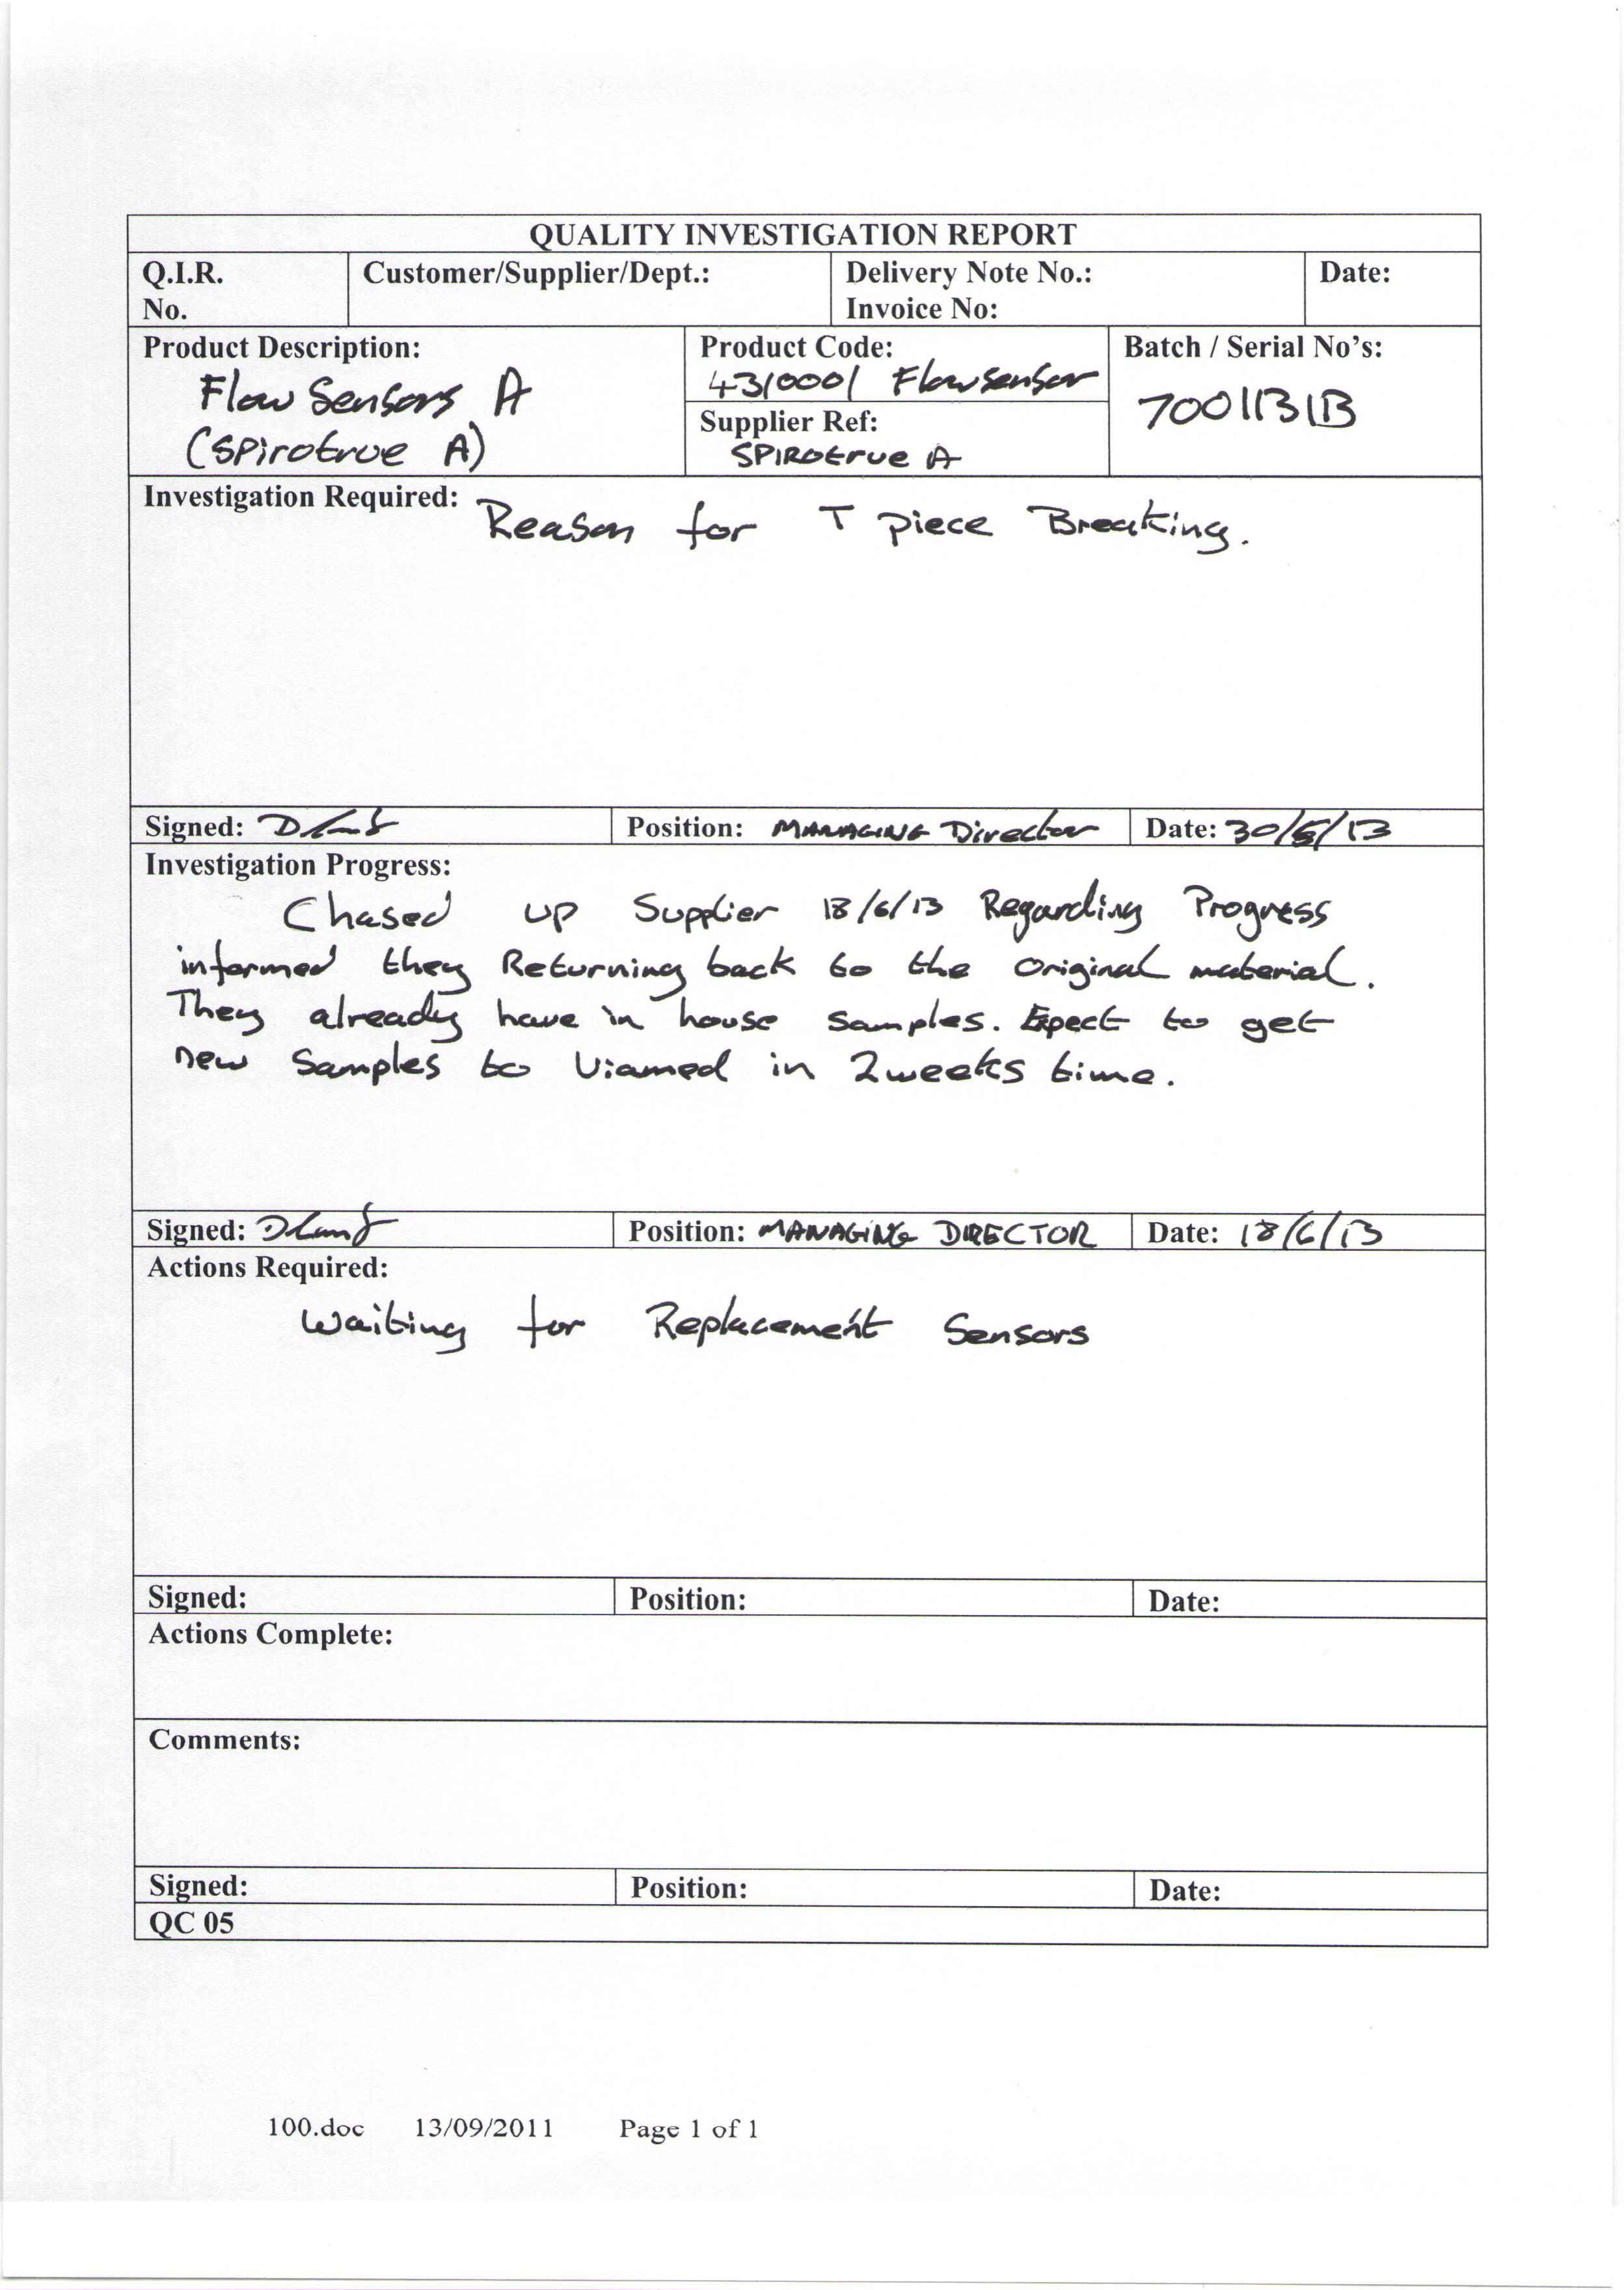 QUALITY INVESTIGATION REPORT
Q.I.R. No.
Customer/Supplier/Dept.:
Delivery Note No.:
Invoice No:
Date:
Product Description:
Flow Sensors A
(Spirotrue A)
Product Code:
4310001 Flowsensor
Supplier Ref:
SPIROtrue A
Batch / Serial No's:
7001131B
Investigation Required: Reason for T piece Breaking.
Signed:
Position: MANAGING Director
Date: 30/5/13
Investigation Progress:
Chased up Supplier 18/6/13 Regarding Progress
informed they Returning back to the original material.
They already have in house samples. Expect to get
new samples to Viamed in 2weeks time.
Signed:
Position: MANAGING DIRECTOR
Date: 18/6/13
Actions Required:
Waiting for Replacement Sensors
Signed:
Position:
Date:
Actions Complete:
Comments:
Signed:
Position:
Date:
QC 05
100.doc 13/09/2011 Page 1 of 1